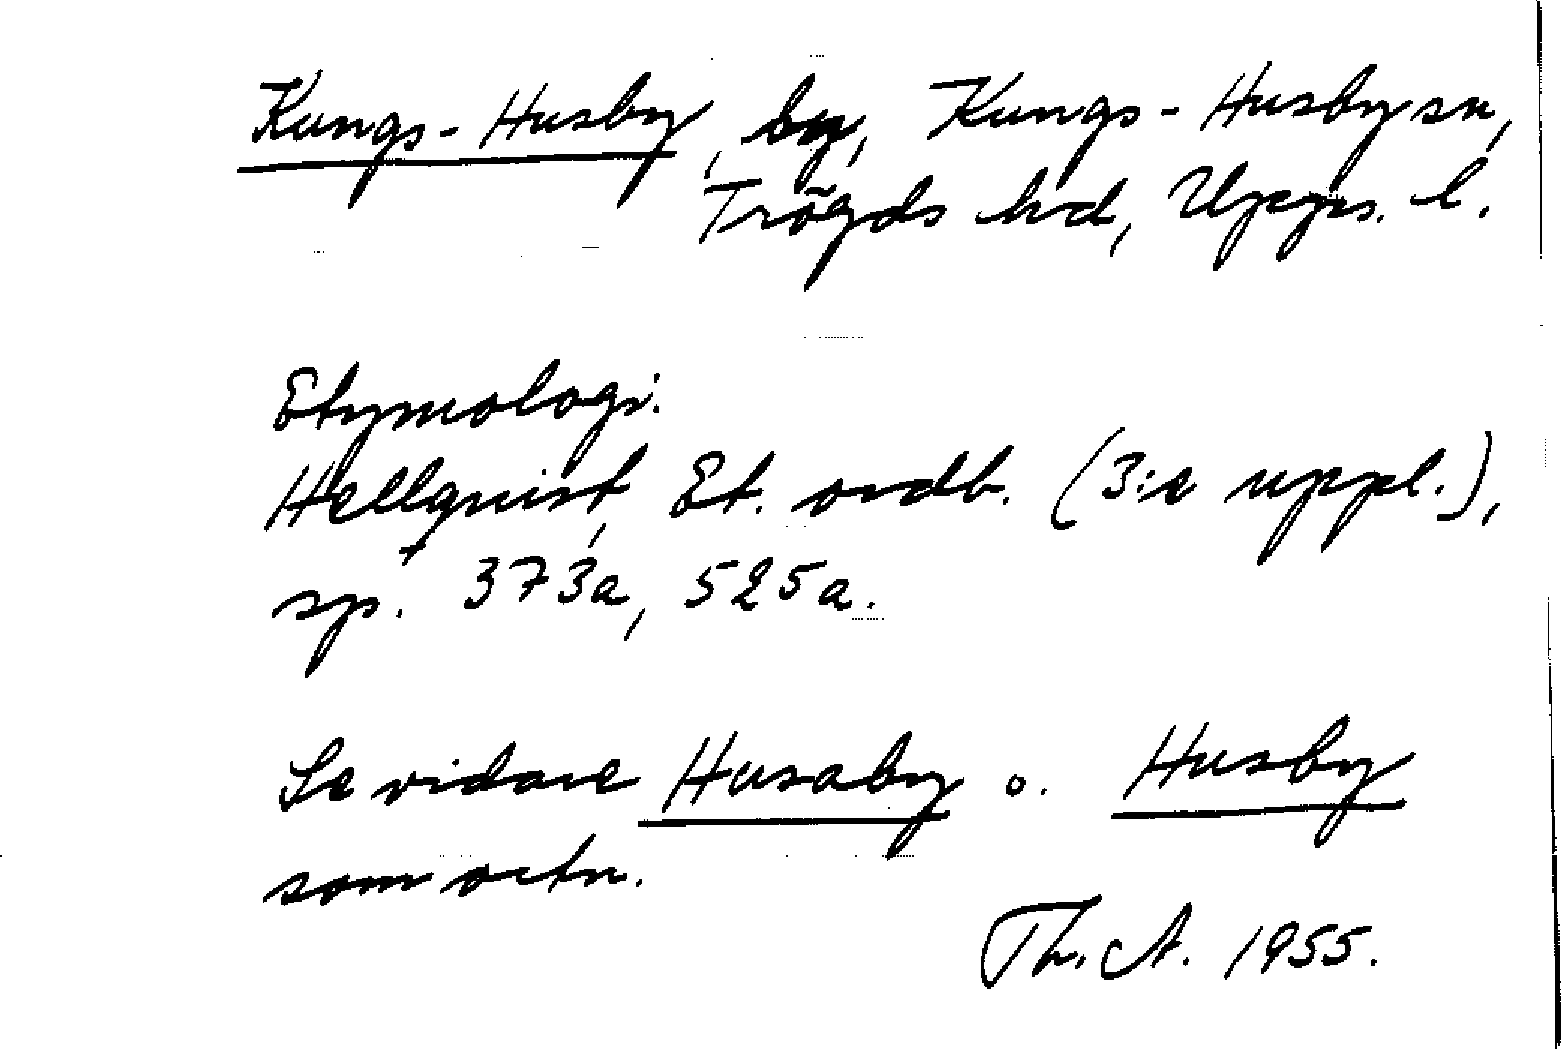 Kungs-Husby, by, Kungs-Husby sn,
Trögds hd, Upps. l.
Etymologi.
Hellquist, Et. ordb. (3:e uppl.),
sp. 373a, 525a.
Se vidare Husaby o. Husby
som ortn.
Th. A. 1955.